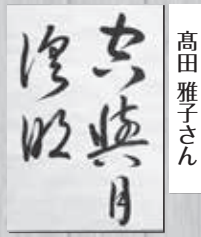 髙田 雅子さん
空與月
明